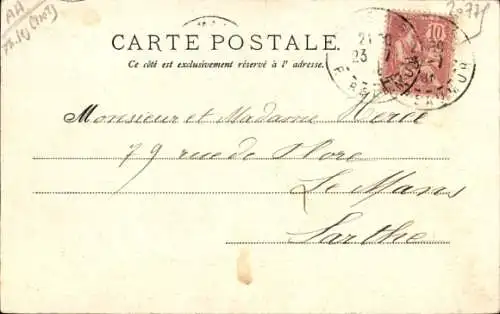 CARTE POSTALE.
Ce côté est exclusivement réservé à l'adresse.
10
Monsieur et Madame
79 rue de Flore
Le Mans
Sarthe